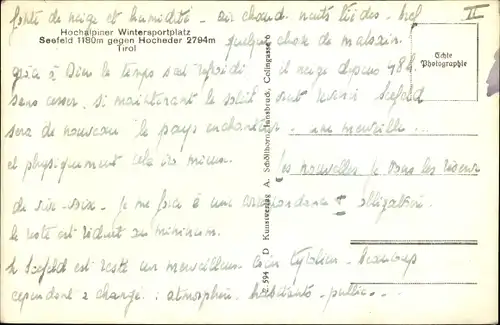 fonte de neige et humidité - air chaud - nuits tièdes - bref
II
Hochalpiner Wintersportplatz
Seefeld 1180m gegen Hocheder 2794m
Tirol
quelque chose de malsain.
Echte
Photographie
grâce à Dieu le temps s'est refroidi il neige depuis 48 h.
sans cesser, si maintenant le soleil veut revenir Seefeld
sera de nouveau le pays enchanteur - une merveille...
et physiquement cela ira mieux. Les nouvelles je vous les
de vive-voix - je me force à une correspondance obligatoire
le reste est réduit au minimum.
Seefeld est resté un merveilleux coin tyrolien - Beaucoup
cependant a changé: atmosphère habitants - public...
594 D Kunstverlag A. Stockhammer, Innsbruck, Colingasse 6